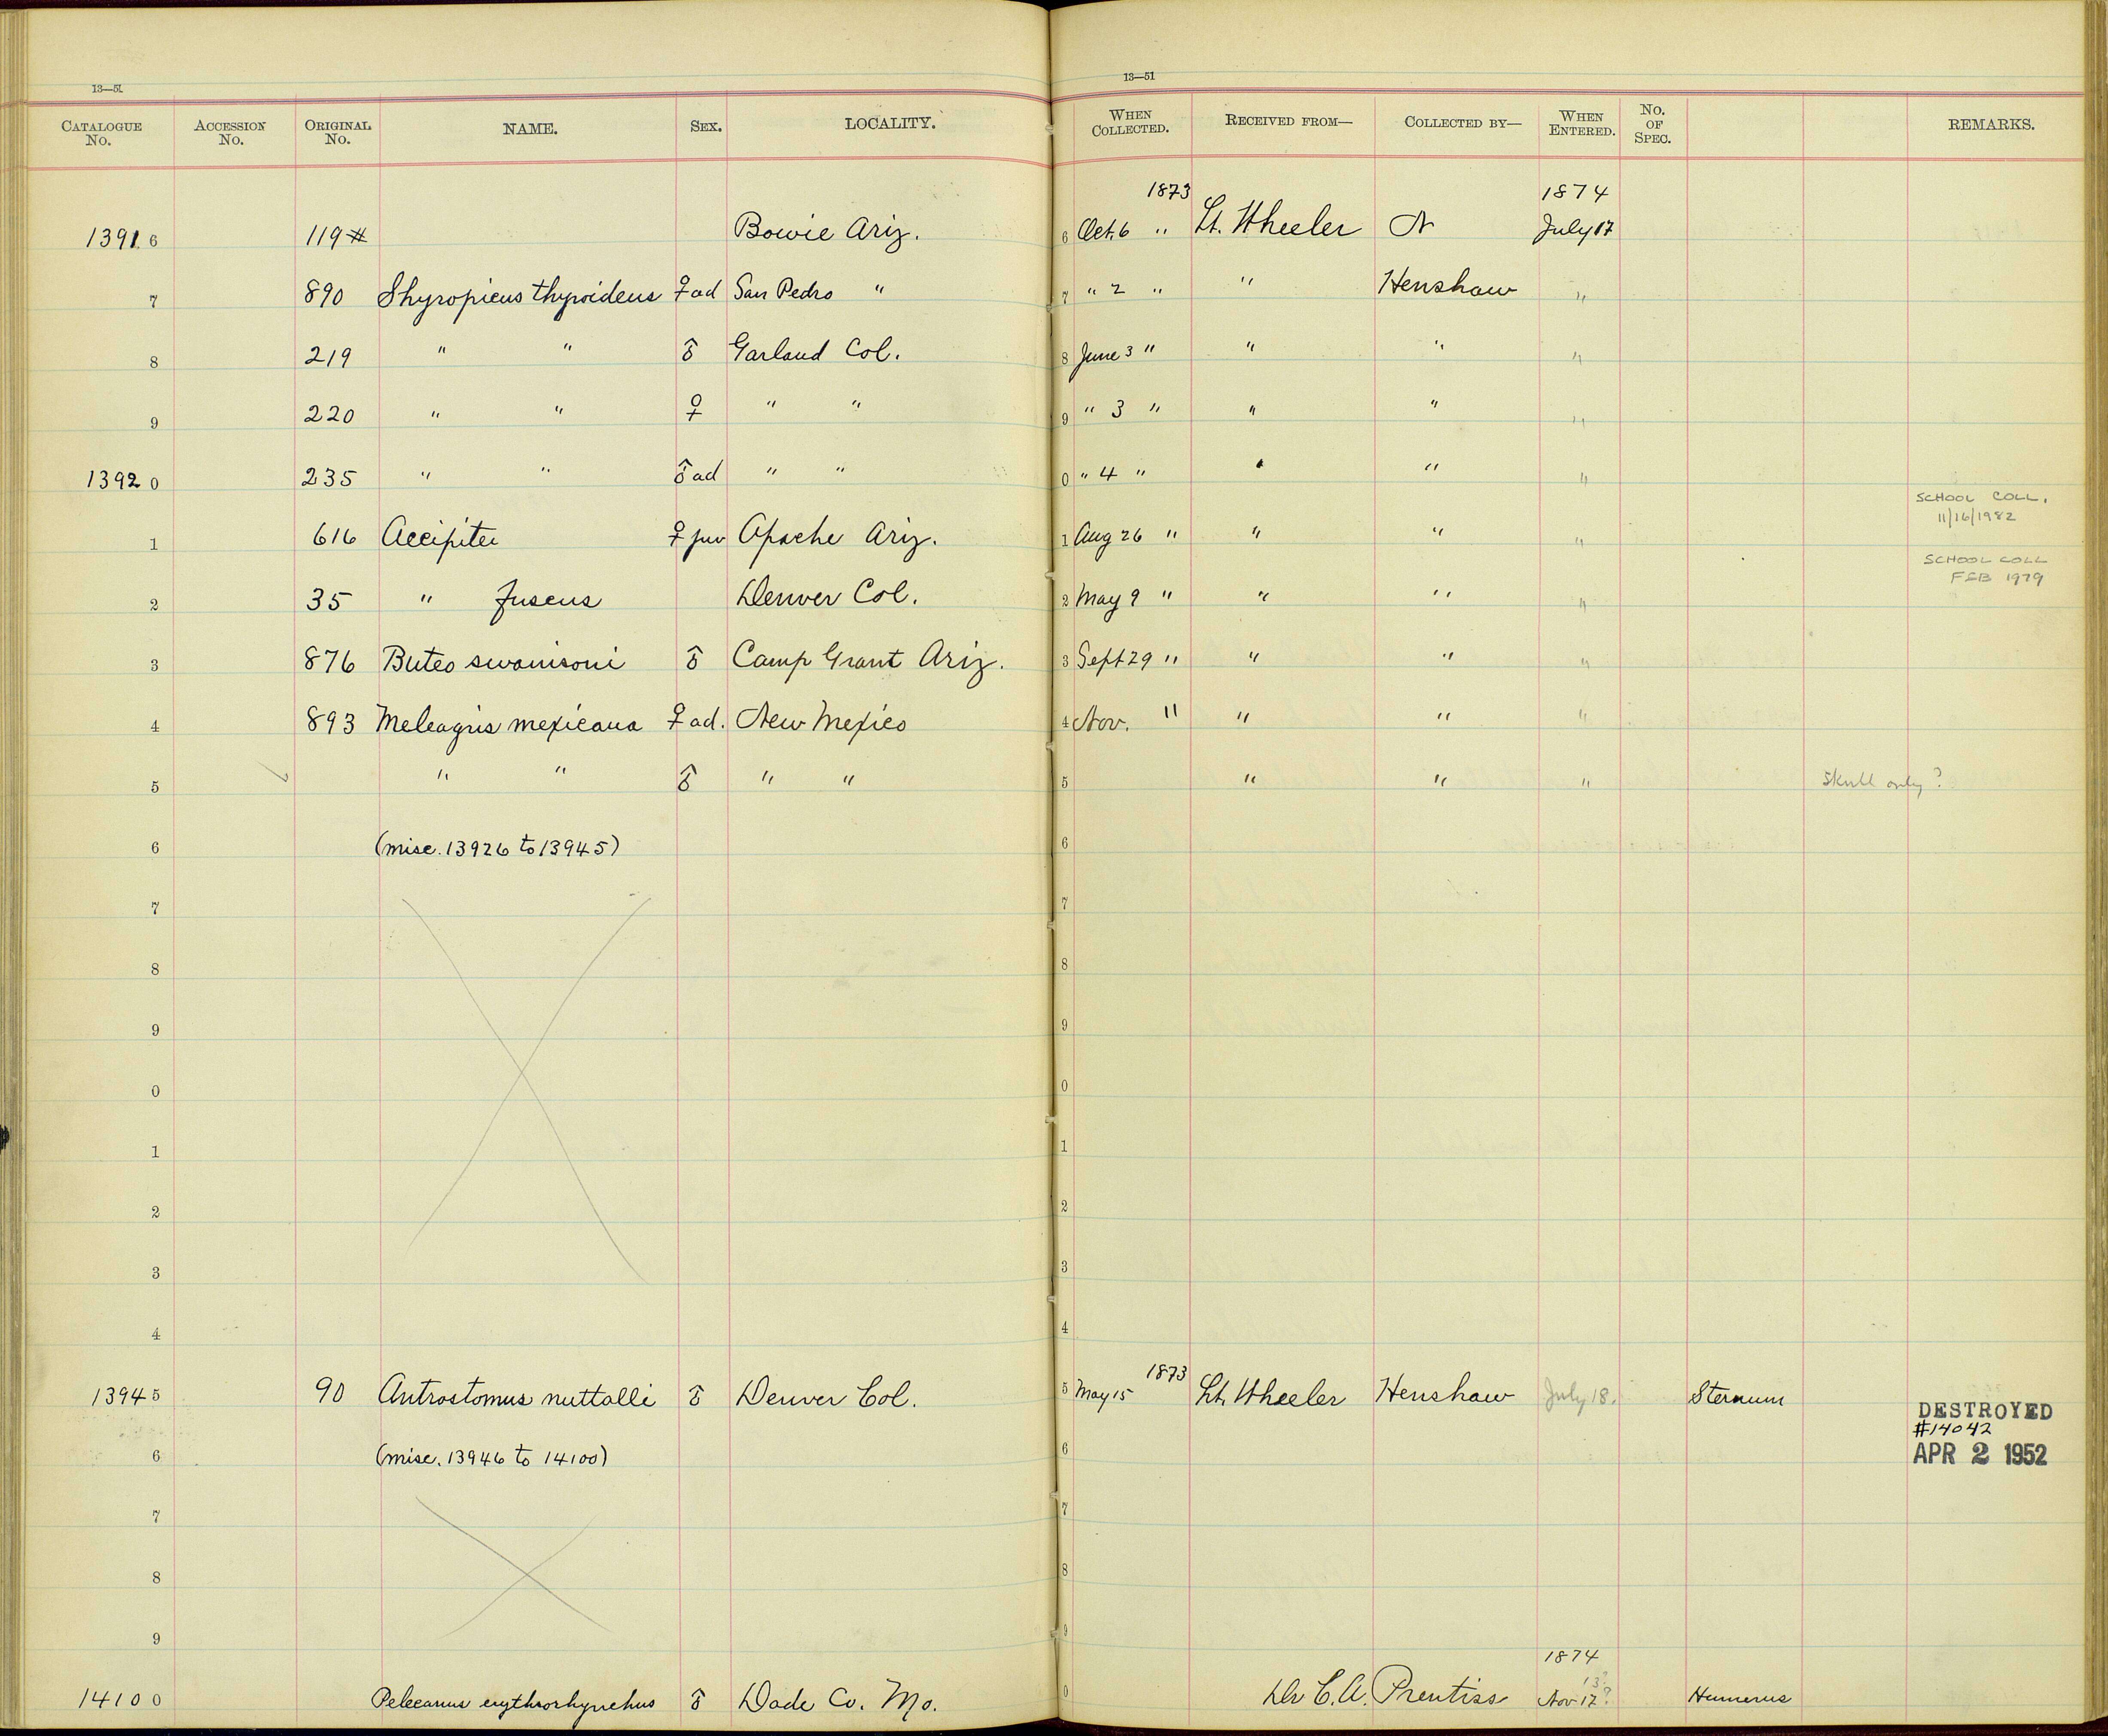 13—51
13—51
CATALOGUE No. ACCESSION No. ORIGINAL No. NAME. SEX. LOCALITY. WHEN COLLECTED. RECEIVED FROM— COLLECTED BY— WHEN ENTERED. No. OF SPEC. REMARKS.
1873 1874
1391 6 119# Bowie Ariz. 6 Oct. 6 " Lt. Wheeler N July 17
7 890 Shyropicus thyroideus ♀ ad San Pedro " 7 " 2 " " Henshaw "
8 219 " " ♂ Garland Col. 8 June 3 " " " "
9 220 " " ♀ " " 9 " 3 " " " "
1392 0 235 " " ♂ ad " " 0 " 4 " " " "
SCHOOL COLL.
11/16/1982
1 616 Accipiter ♀ juv Apache Ariz. 1 Aug 26 " " " "
SCHOOL COLL
FEB 1979
2 35 " fuscus Denver Col. 2 May 9 " " " "
3 876 Buteo swainsoni ♂ Camp Grant Ariz. 3 Sept 29 " " " "
4 893 Meleagris mexicana ♀ ad. New Mexico 4 Nov. " " " "
5 " " ♂ " " 5 " " " Skull only?
6 (misc. 13926 to 13945) 6
7 7
8 8
9 9
0 0
1 1
2 2
3 3
4 4
1873
1394 5 90 Antrostomus nuttalli ♂ Denver Col. 5 May 15 Lt. Wheeler Henshaw July 18. Sternum
DESTROYED
#14042
APR 2 1952
6 (misc. 13946 to 14100) 6
7 7
8 8
9 9
1874
13?
1410 0 Pelecanus erythrorhynchus ♂ Dade Co. Mo. 0 Dr C. A. Prentiss Nov 17? Humerus